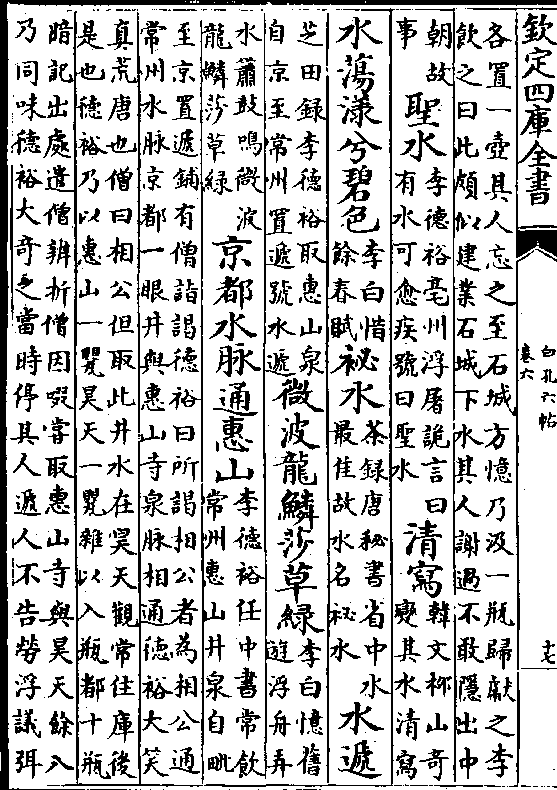 欽定四庫全書
白孔六帖
卷六
十七
各置一壺其人忘之至石城方憶乃汲一瓶歸獻之李
飲之曰此頗似建業石城下水其人謝過不敢隱出中
朝故
事
聖水
李德裕亳州浮屠詭言曰
有水可愈疾號曰聖水
清寫
韓文郴山奇
變其水清寫
水蕩漾兮碧色
李白惜
餘春賦
祕水
茶録唐秘書省中水
最佳故水名祕水
水遞
芝田録李德裕取惠山泉
自京至常州置遞號水遞
微波龍鱗莎草緑
李白憶舊
遊浮舟弄
水蕭鼓鳴微波
龍鱗莎草緑
京都水脉通惠山
李德裕任中書常飲
常州惠山井泉自毗
至京置遞鋪有僧詣謁德裕曰所謁相公者為相公通
常州水脉京都一眼井與惠山寺泉脉相通德裕大笑
真荒唐也僧曰相公但取此井水在昊天觀常住庫後
是也德裕乃以惠山一甖昊天一甖雜以入瓶都十瓶
暗記出處遣僧辨析僧因啜嘗取惠山寺與昊天餘八
乃同味德裕大奇之當時停其人遞人不告勞浮議弭